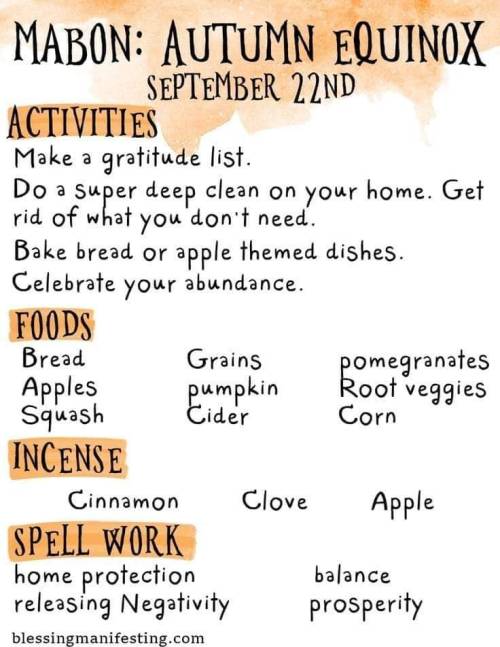 MABON: AUTUMN EQUINOX
SEPTEMBER 22ND
ACTIVITIES
Make a gratitude list.
Do a super deep clean on your home. Get
rid of what you don't need.
Bake bread or apple themed dishes.
Celebrate your abundance.
FOODS
Bread Grains pomegranates
Apples pumpkin Root veggies
Squash Cider Corn
INCENSE
Cinnamon Clove Apple
SPELL WORK
home protection balance
releasing Negativity prosperity
blessingmanifesting.com